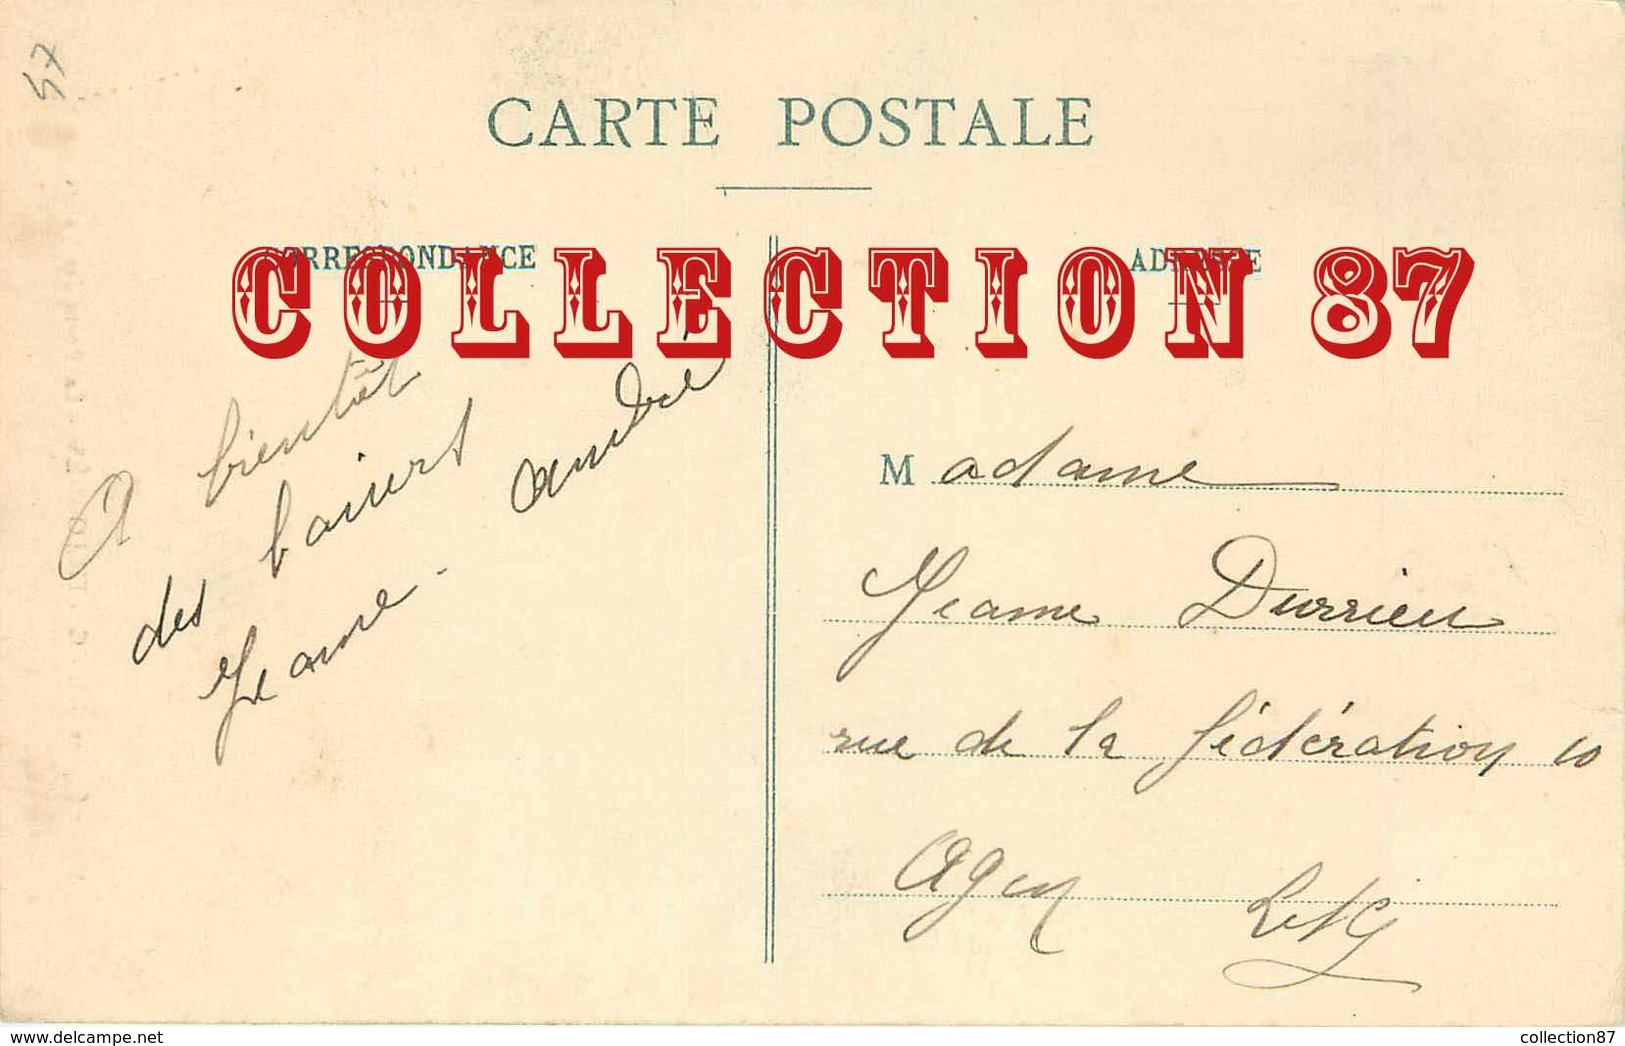 57
CARTE POSTALE
CORRESPONDANCE
ADRESSE
COLLECTION 87
A bientôt
des baisers
Jeanne - André
Madame
Jeanne Durrieu
rue de la fédération 10
Agen L et G
delcampe.net
collection87